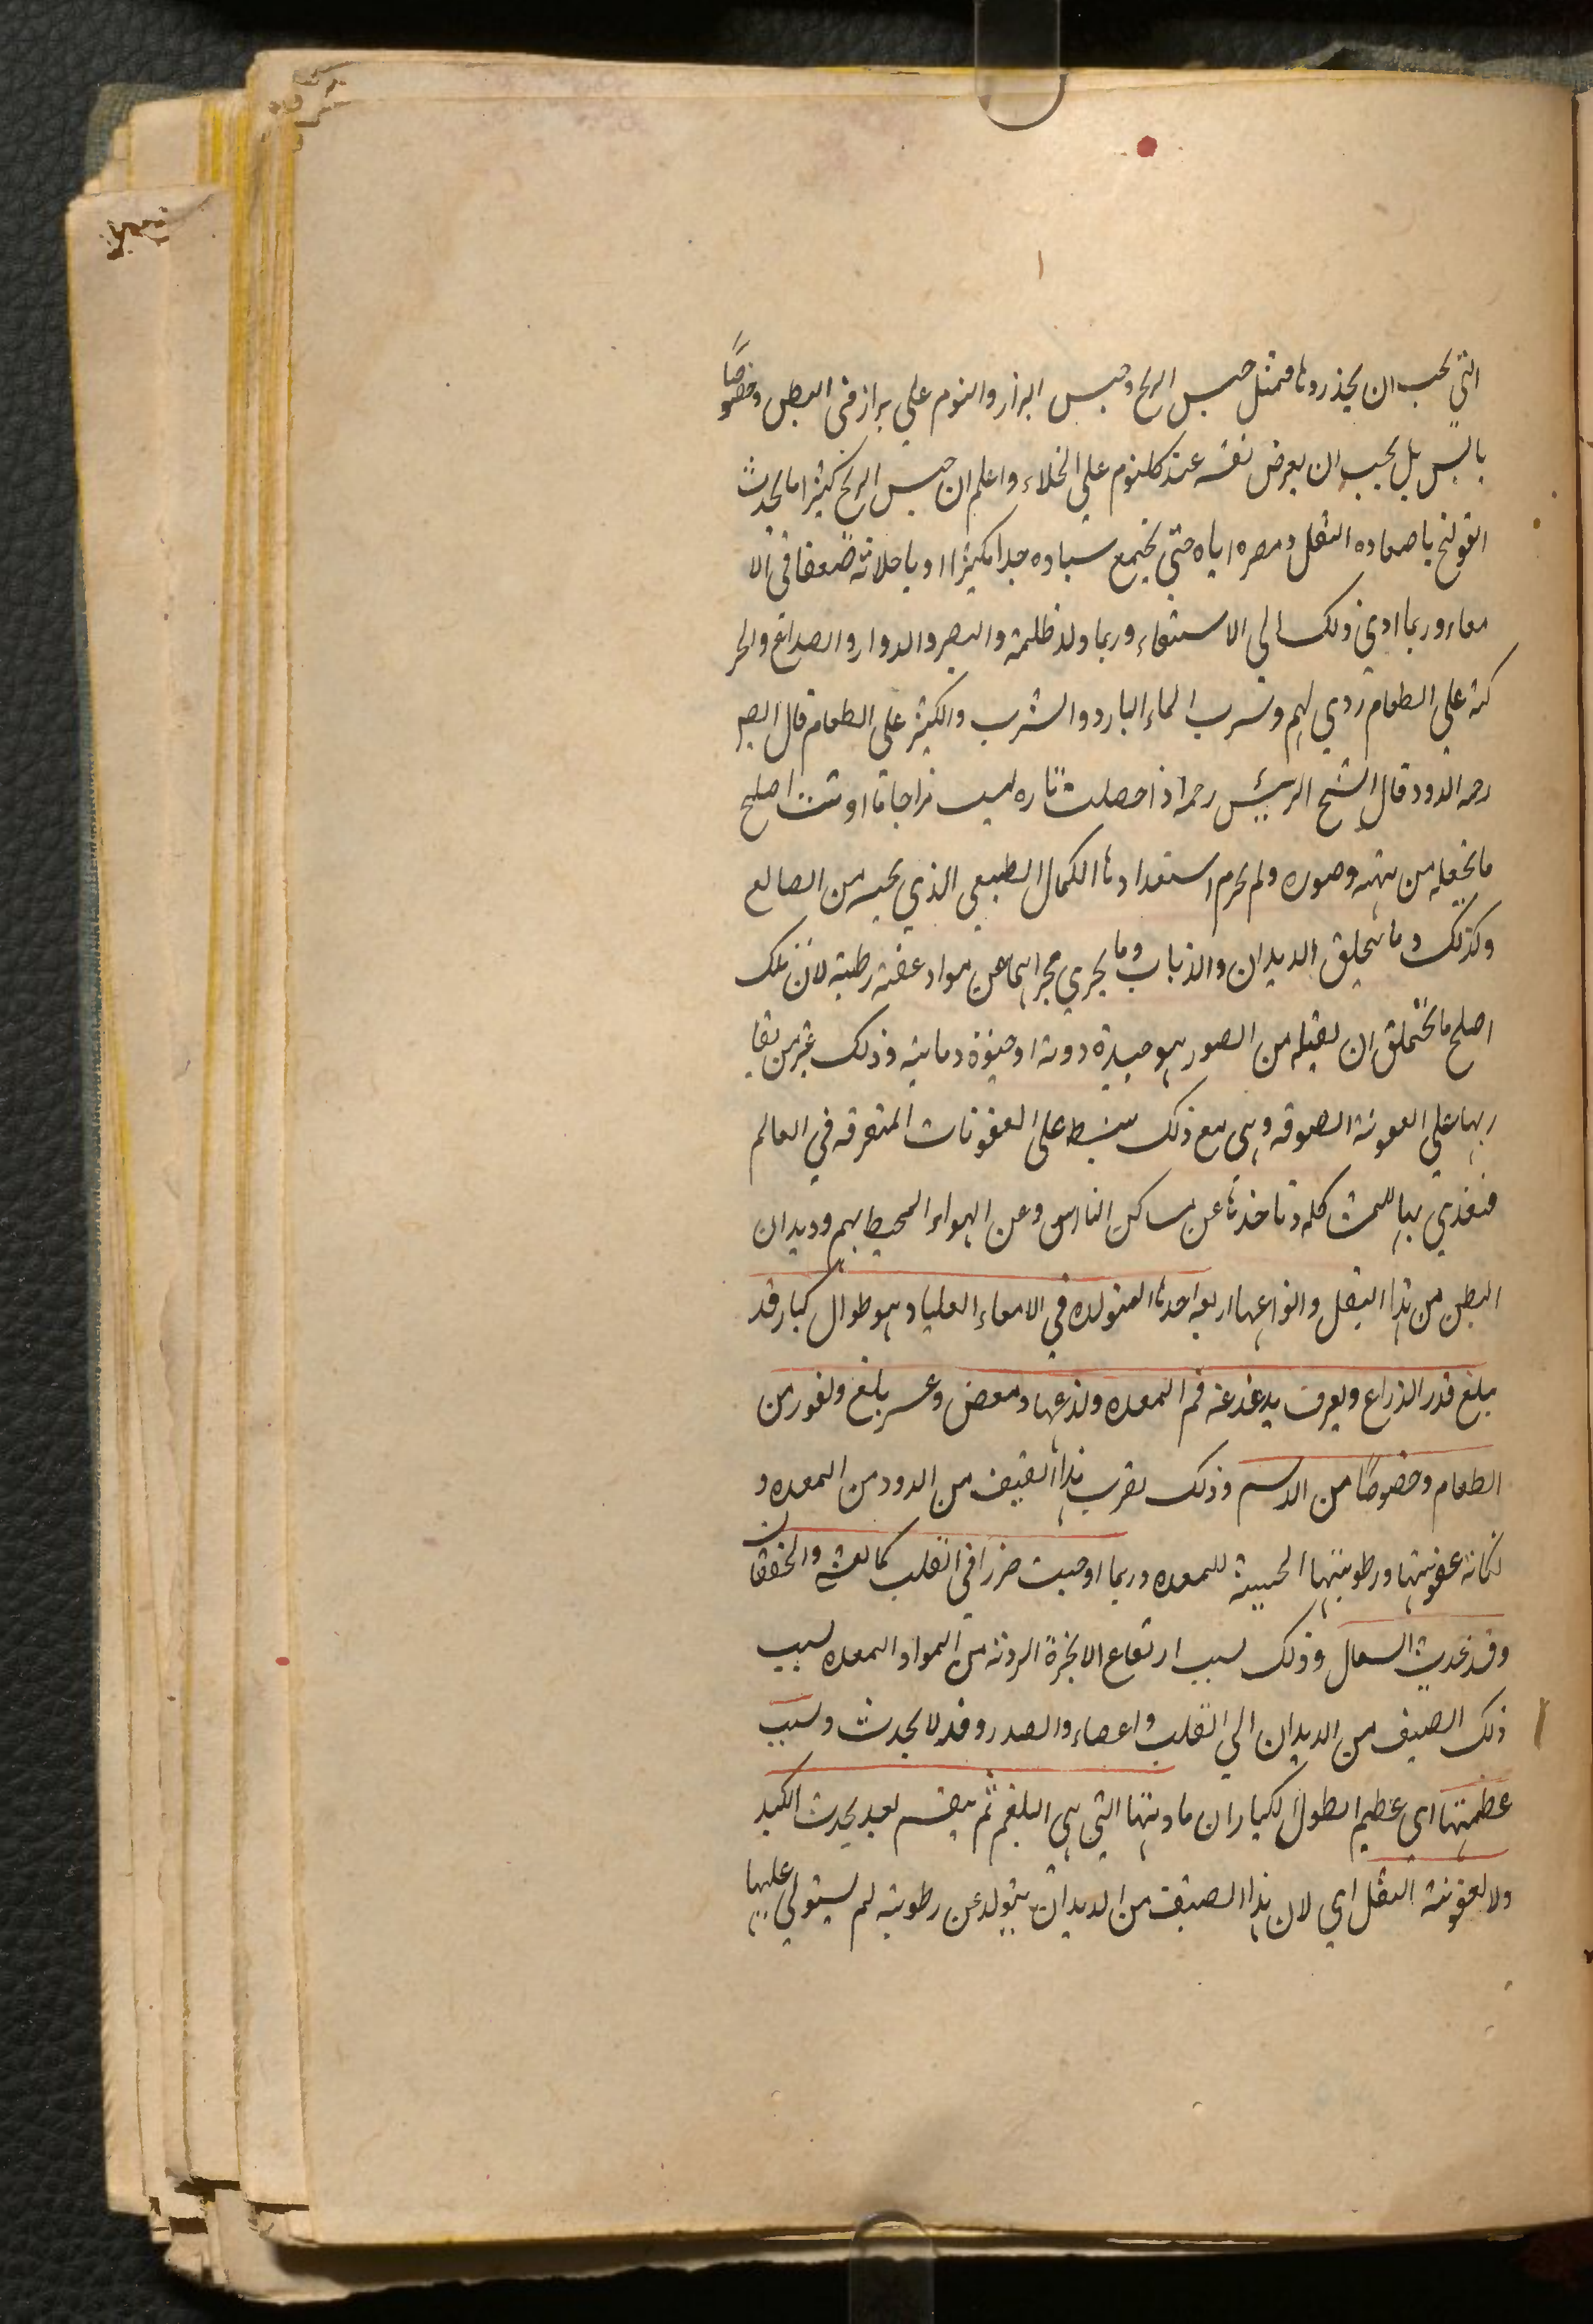 التي يجب ان يحذروها فمثل حبس الريح وحبس البراز والنوم علي براز في البطن وخصوصًا
يابس بل يجب ان يعرض نفسه عند كل نوم علي الخلاء واعلم ان حبس الريح كثيرا ما يحدث
القولنج باصعاده الثقل وحصره اياه حتي يجتمع شياوه جدا كثيرا او باحلاثه ضعفا في الا
معاء وربما ادي ذلك الي الاستسقاء وربما ولد ظلمة والبصر والدوار والصداع والحر
كة علي الطعام ردي لهم وشرب الماء البارد والشرب والكثير علي الطعام قال المص
رحمه الدود قال الشيخ الرئيس رحمه اذا حصلت تاره مزاجا ما اصلح
ما يحتمله من هيئه وصوره ولم يحرم استعدادها الكمال الطبيعي الذي يحبه من الصانع
وكذلك وما يتخلق الديدان والذباب وما يجري مجراهما عن مواد عفنه رطبة لان تلك
اصلح ما يحتملق ان يقبله من الصور هو حيوة دودية او حيوة ذبابية وذلك خير من بقا
ربها علي العفونة الصرفه وهي مع ذلك يتسلط علي العفونات المتفرقه في العالم
فتغذي بها للمشاكله وتاخذها عن مساكن الناس وعن الهواء المحيط بهم وديدان
البطن من هذا القبيل وانواعها اربعه احدها المتولده في الامعاء العليا وهو طوال كبار قد
يبلغ قدر الذراع ويعرف بدغدغه فم المعده ولذعها ومغص وعسر بلع ونفور من
الطعام وخصوصًا من الدسم وذلك لقرب هذا الصنف من الدود من المعده و
لكانه عفونتها ورطوبتها الخبيثة للمعده وربما اوجبت ضررا في القلب كالغشي والخفقان
وقد تحدث السعال وذلك بسبب ارتفاع الابخرة الرديه من المواد المعده بسبب
ذلك الصنف من الديدان الي القلب واعضاء والصدر وقد لا يحدث وسبب
عظمتها اي عظيم الطول الكبار ان مادتها التي هي البلغم ثم ينقسم بعد يحدث الكبد
ولا لعفونة الثقل اي لان هذا الصنف من الديدان يتولد عن رطوبته لم يستولي عليها